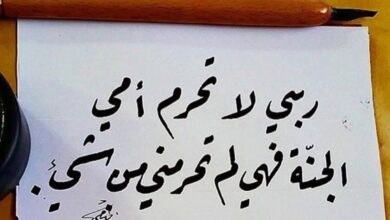 ربي لا تحرم أمي
الجنّة فهي لم تحرمني من شيء.